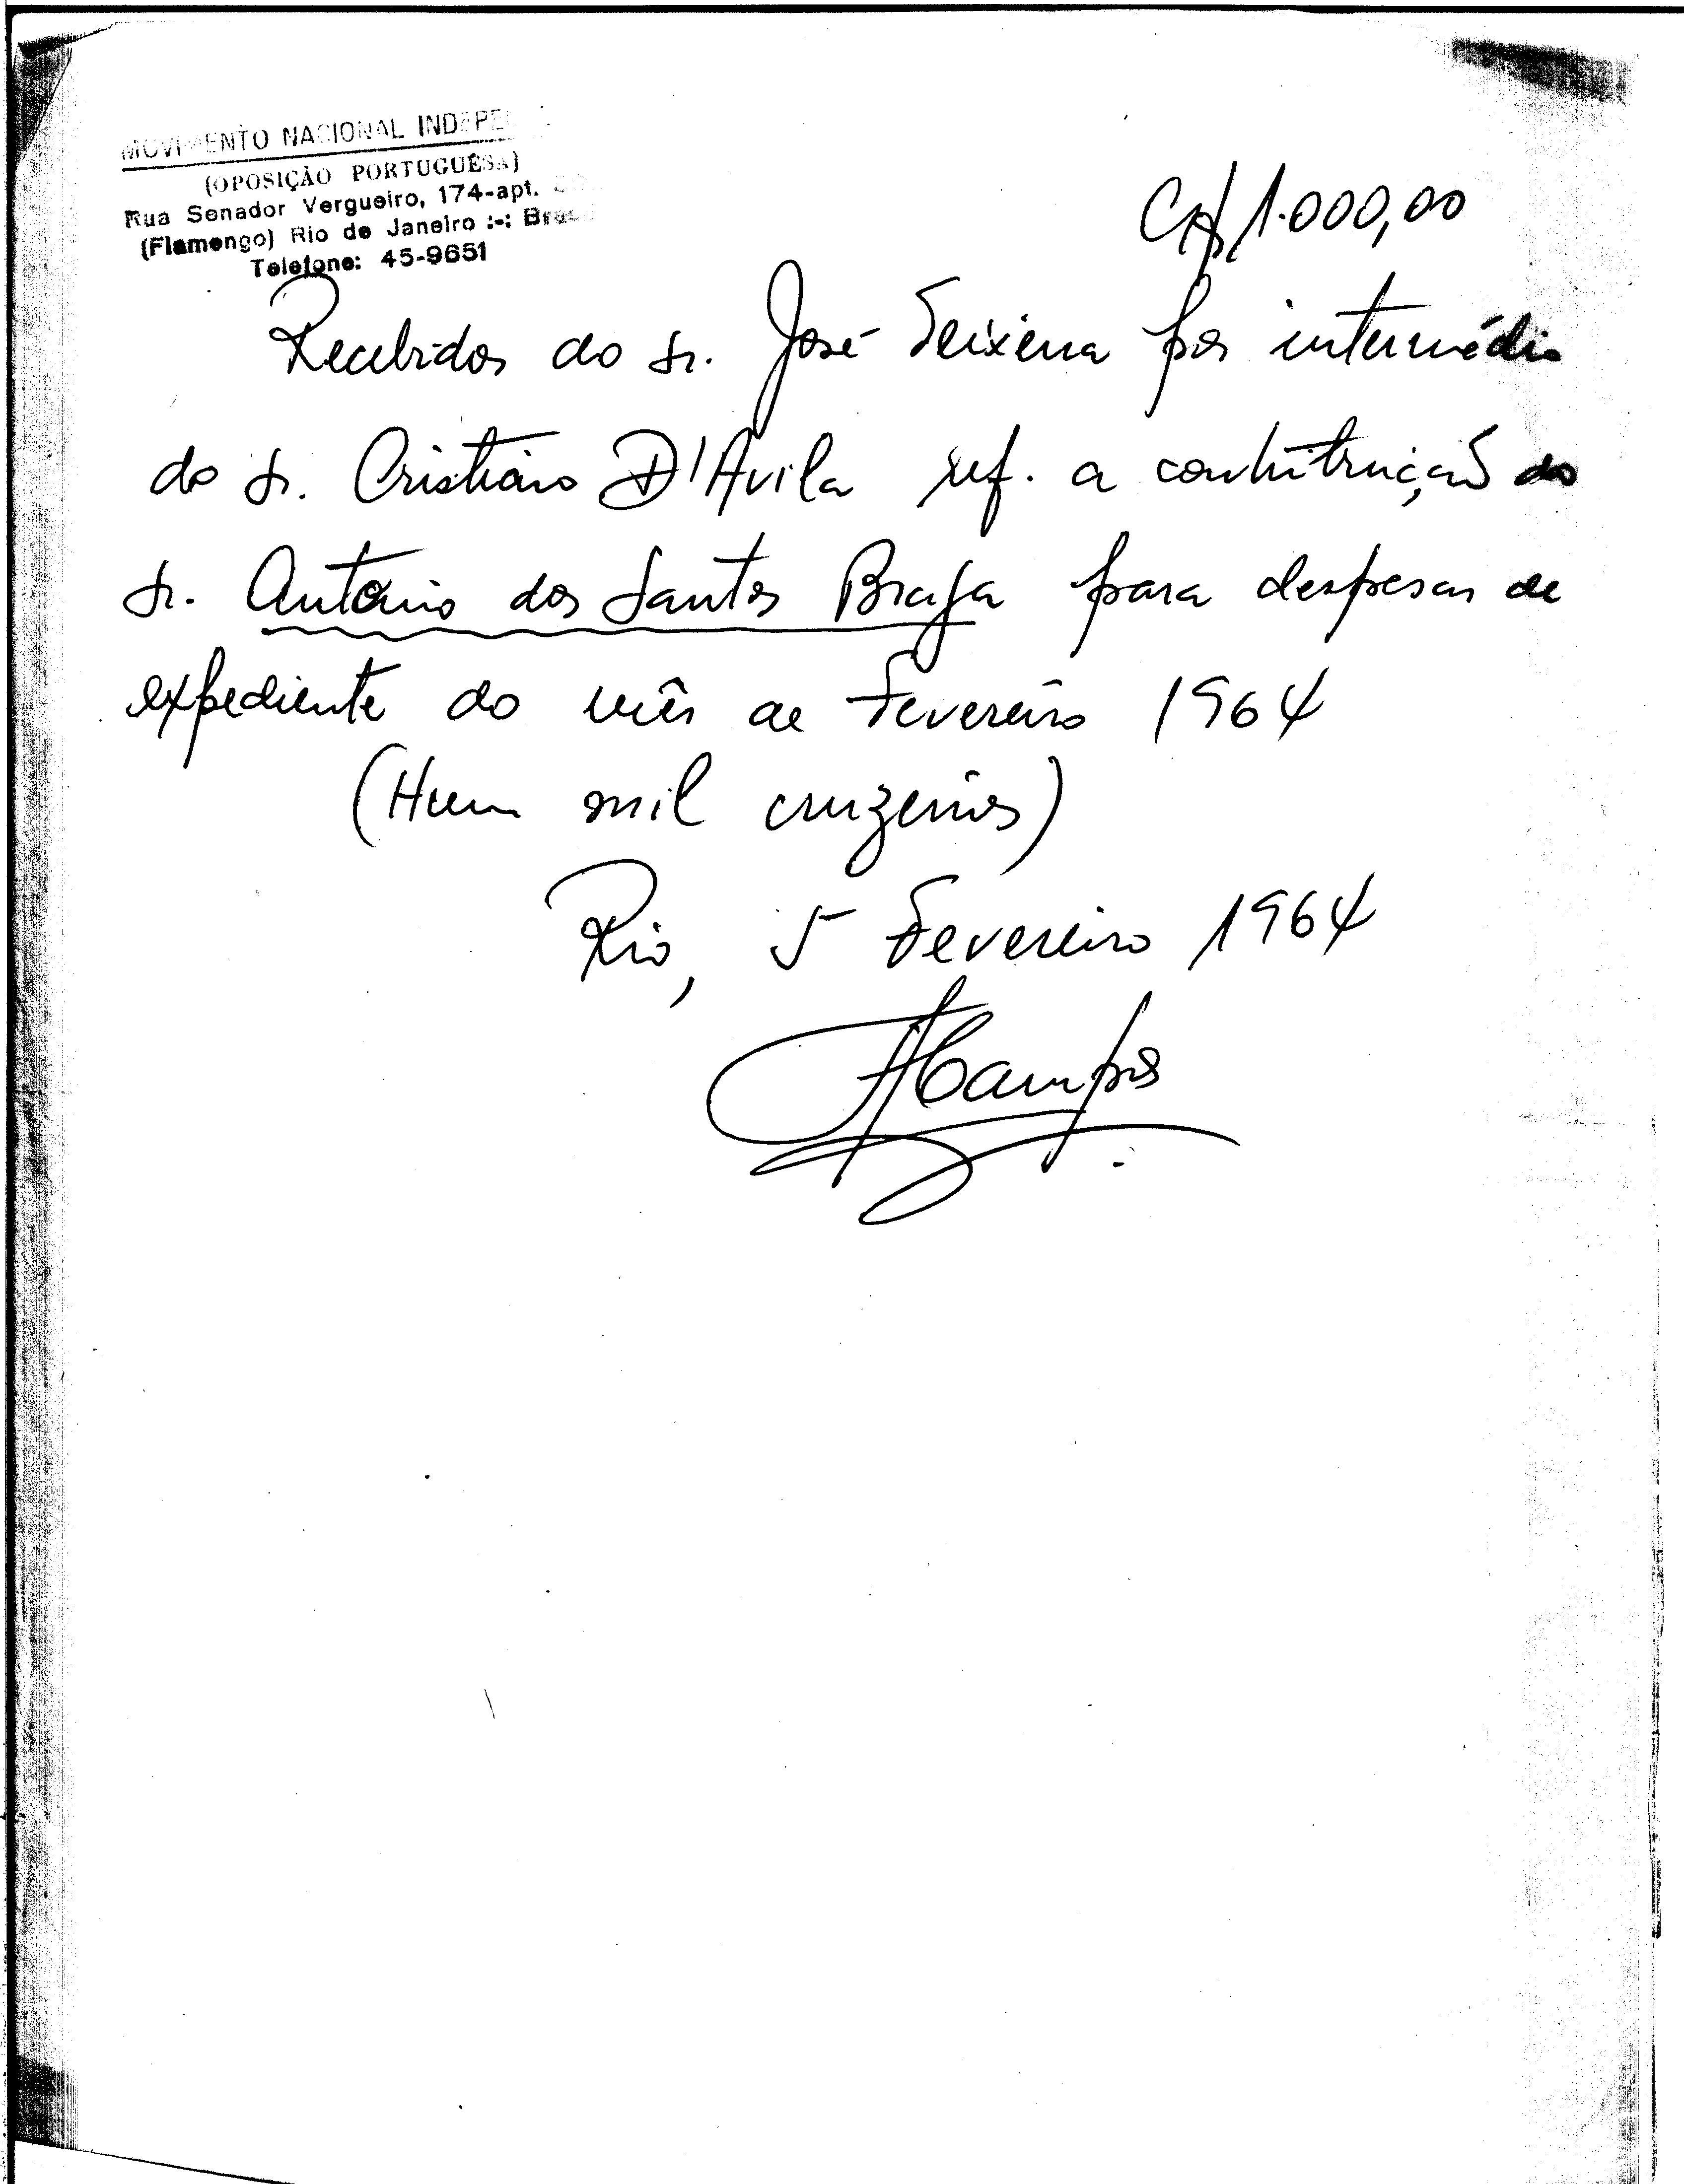 MOVIMENTO NACIONAL INDEPE
(OPOSIÇÃO PORTUGUÊSA)
Rua Senador Vergueiro, 174-apt.
(Flamengo) Rio de Janeiro :-: Bras
Telefone: 45-9651
Cr$ 1.000,00
Recebidos do sr. José Teixeira por intermédio
do sr. Cristiano D'Avila ref. a contribuição do
sr. António dos Santos Braga para despesas de
expediente do mês de Fevereiro 1964
(Hum mil cruzeiros)
Rio, 5 Fevereiro 1964
ACampos